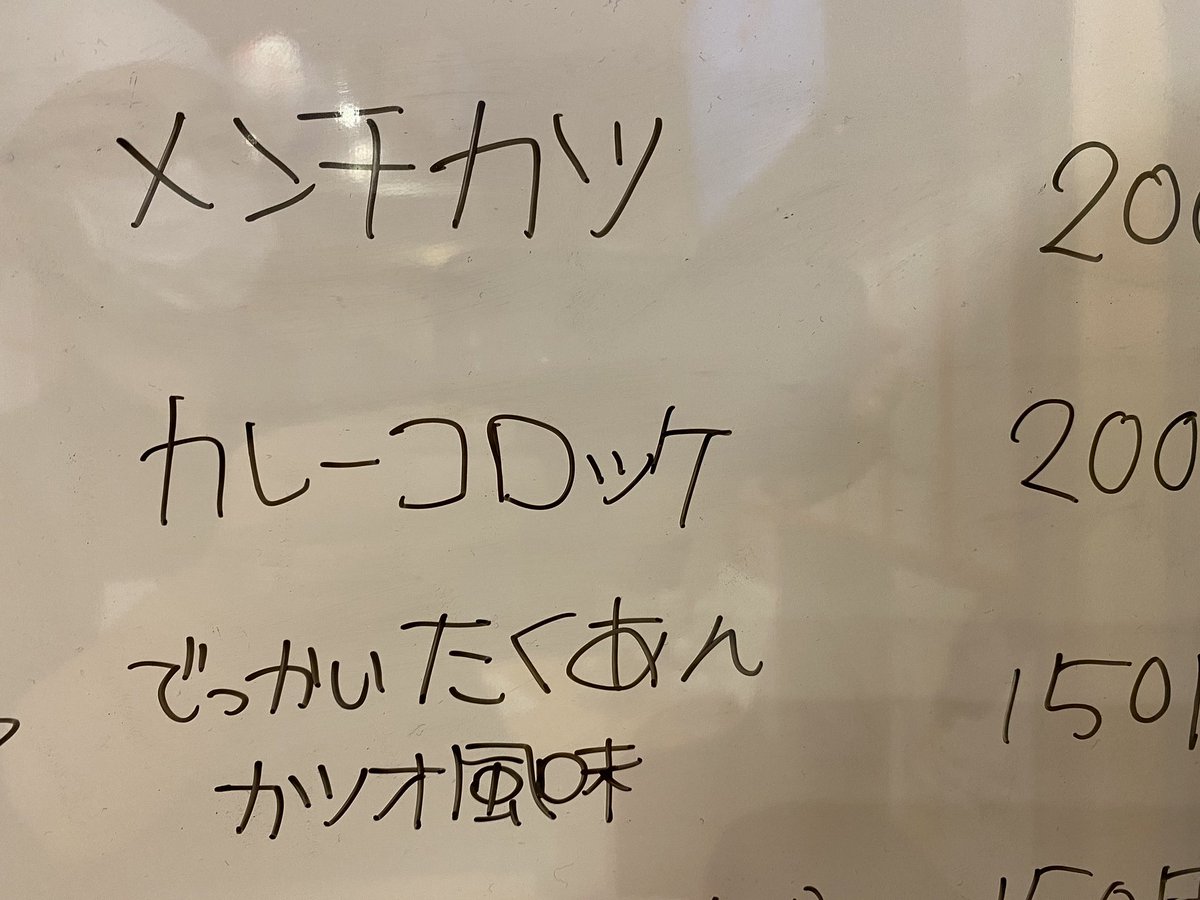 メンチカツ 200
カレーコロッケ 200
でっかいたくあん 150円
カツオ風味